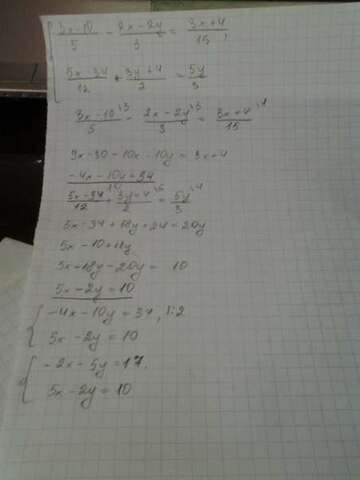 { (3x-10)/5 - (2x-2y)/3 = (3x+4)/15,
(5x-34)/12 + (3y+4)/2 = 5y/3
(3x-10)/5 \3 - (2x-2y)/3 \5 = (3x+4)/15 \1
9x-30-10x-10y=3x+4
-4x-10y=34
(5x-34)/12 + (3y+4)/2 \6 = 5y/3 \4
5x-34+18y+24=20y
5x-10+18y
5x+18y-20y= 10
5x-2y=10
{ -4x-10y=34, |:2
5x-2y=10
{ -2x-5y=17,
5x-2y=10